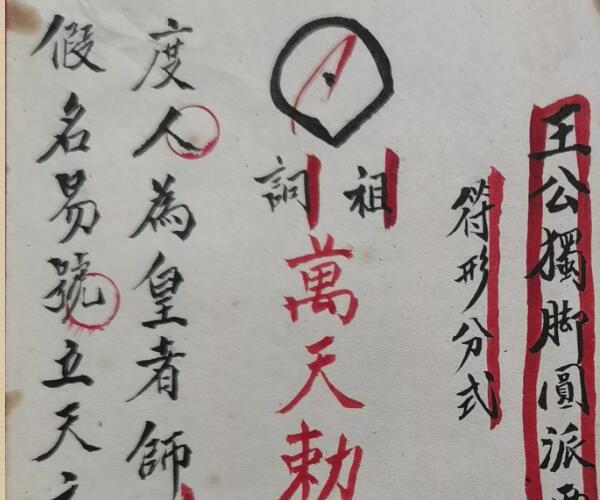 王公獨脚圓派
符形分式
祖
詞
萬天勅
度人為皇者師
假名易號立天